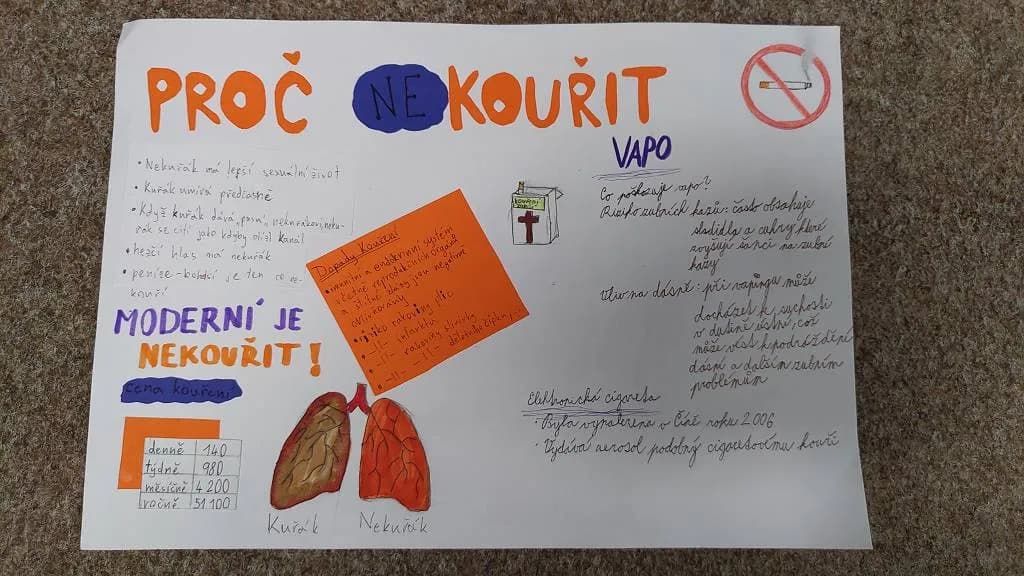 PROČ NEKOUŘIT
• Nekuřák má lepší sexuální život
• Kuřák umírá předčasně
• Když kuřák dává první
rák se cítí jako kdyby olízl kanál
• hezčí hlas má nekuřák
• peníze - bohdší je ten co ne-
kouří
MODERNÍ JE
NEKOUŘIT!
cena kouření
denně 140
týdně 980
měsíčně 4 200
ročně 51 100
Dopady kouření
• imunitní a endokrinní systém
včetně reprodukčních orgánů
a štítné žlázy jsou negativně
ovlivňovány
• riziko rakoviny plic
• -||- infarktu
• -||- rakoviny
• -||- -||- děložního čípku
Kuřák
Nekuřák
VAPO
Co poškozuje vapo?
Riziko zubních kazů: často obsahuje
sladidla a cukry, které
zvyšují šanci na zubní
kazy
Vliv na dásně: při vapingu může
docházet k suchosti
v dutině ústní, což
může vést k podráždění
dásní a dalším zubním
problémům
Elektronická cigareta
• Byla vynalezena v Číně roku 2006
• Vydává aerosol podobný cigaretovému kouři